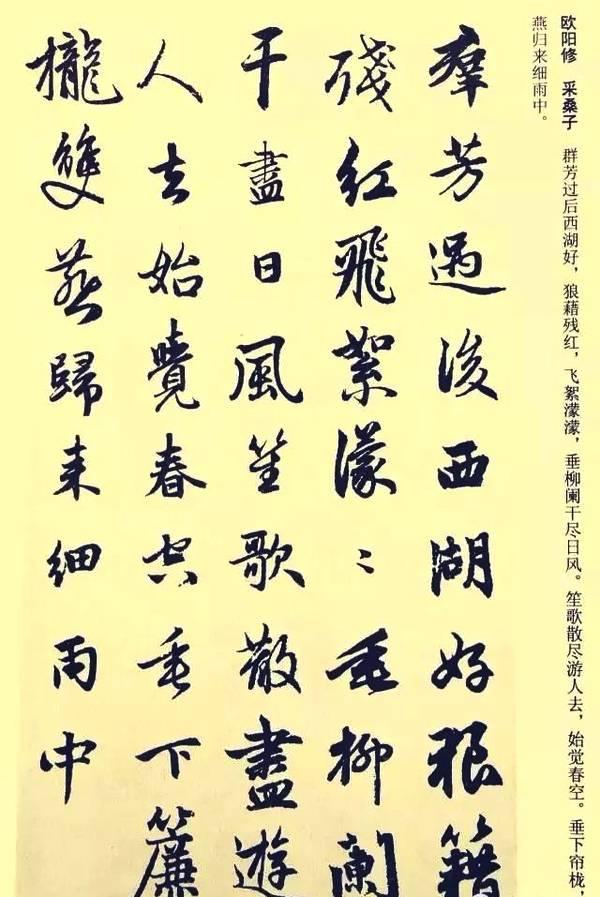 欧阳修 采桑子 群芳过后西湖好，狼藉残红，飞絮濛濛，垂柳阑干尽日风。笙歌散尽游人去，始觉春空。垂下帘栊，
燕归来细雨中。
羣芳過後西湖好狼籍
殘紅飛絮濛〻垂柳闌
干盡日風笙歌散盡遊
人去始覺春空垂下簾
櫳雙燕歸来細雨中